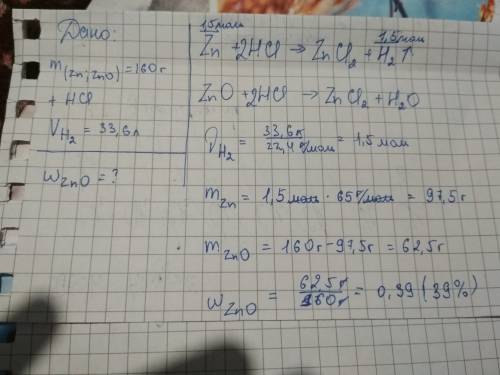 Дано:
m(Zn; ZnO) = 160г
+ HCl
V H₂ = 33,6 л
ω ZnO = ?
1,5 моль 1,5 моль
Zn + 2HCl → ZnCl₂ + H₂↑
ZnO + 2HCl → ZnCl₂ + H₂O
ν H₂ = 33,6 л / 22,4 л/моль = 1,5 моль
m Zn = 1,5 моль · 65 г/моль = 97,5 г
m ZnO = 160г - 97,5 г = 62,5 г
ω ZnO = 62,5 г / 160 г = 0,39 (39%)